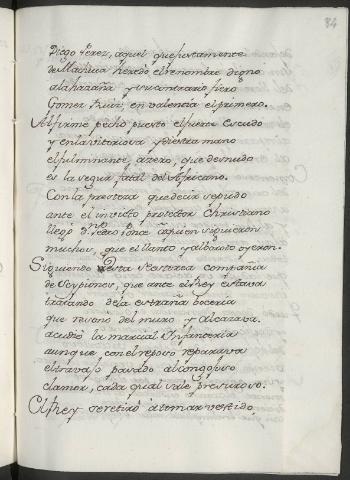 84
Diego Perez, aquel que justamente
de Machuca heredó el renombre digno
a la hazaña y su contrario fiero
Gomez Ruiz, en valencia el primero.
Al firme pecho puesto el fuerte escudo
y en la vitoriosa y diestra mano
el fulminante azero, que desnudo
es la segur fatal del Africano.
Con la presteza que decir se pudo
ante el invicto protector Christiano
llegó Dn. Pedro Ponce a quien siguieron
muchos, que el llanto y alboroto oyeron.
Siguiendo esta compañia
de Scipiones, que ante el Rey estava
tratando de la estraña boceria
que resonó del muro y Alcazava.
acudió la marcial Infanteria
aunque, con el reposo reparava
el travajo pasado al congojoso
clamor, cada qual sale presuroso.
El Rey se retiró a tomar vestido